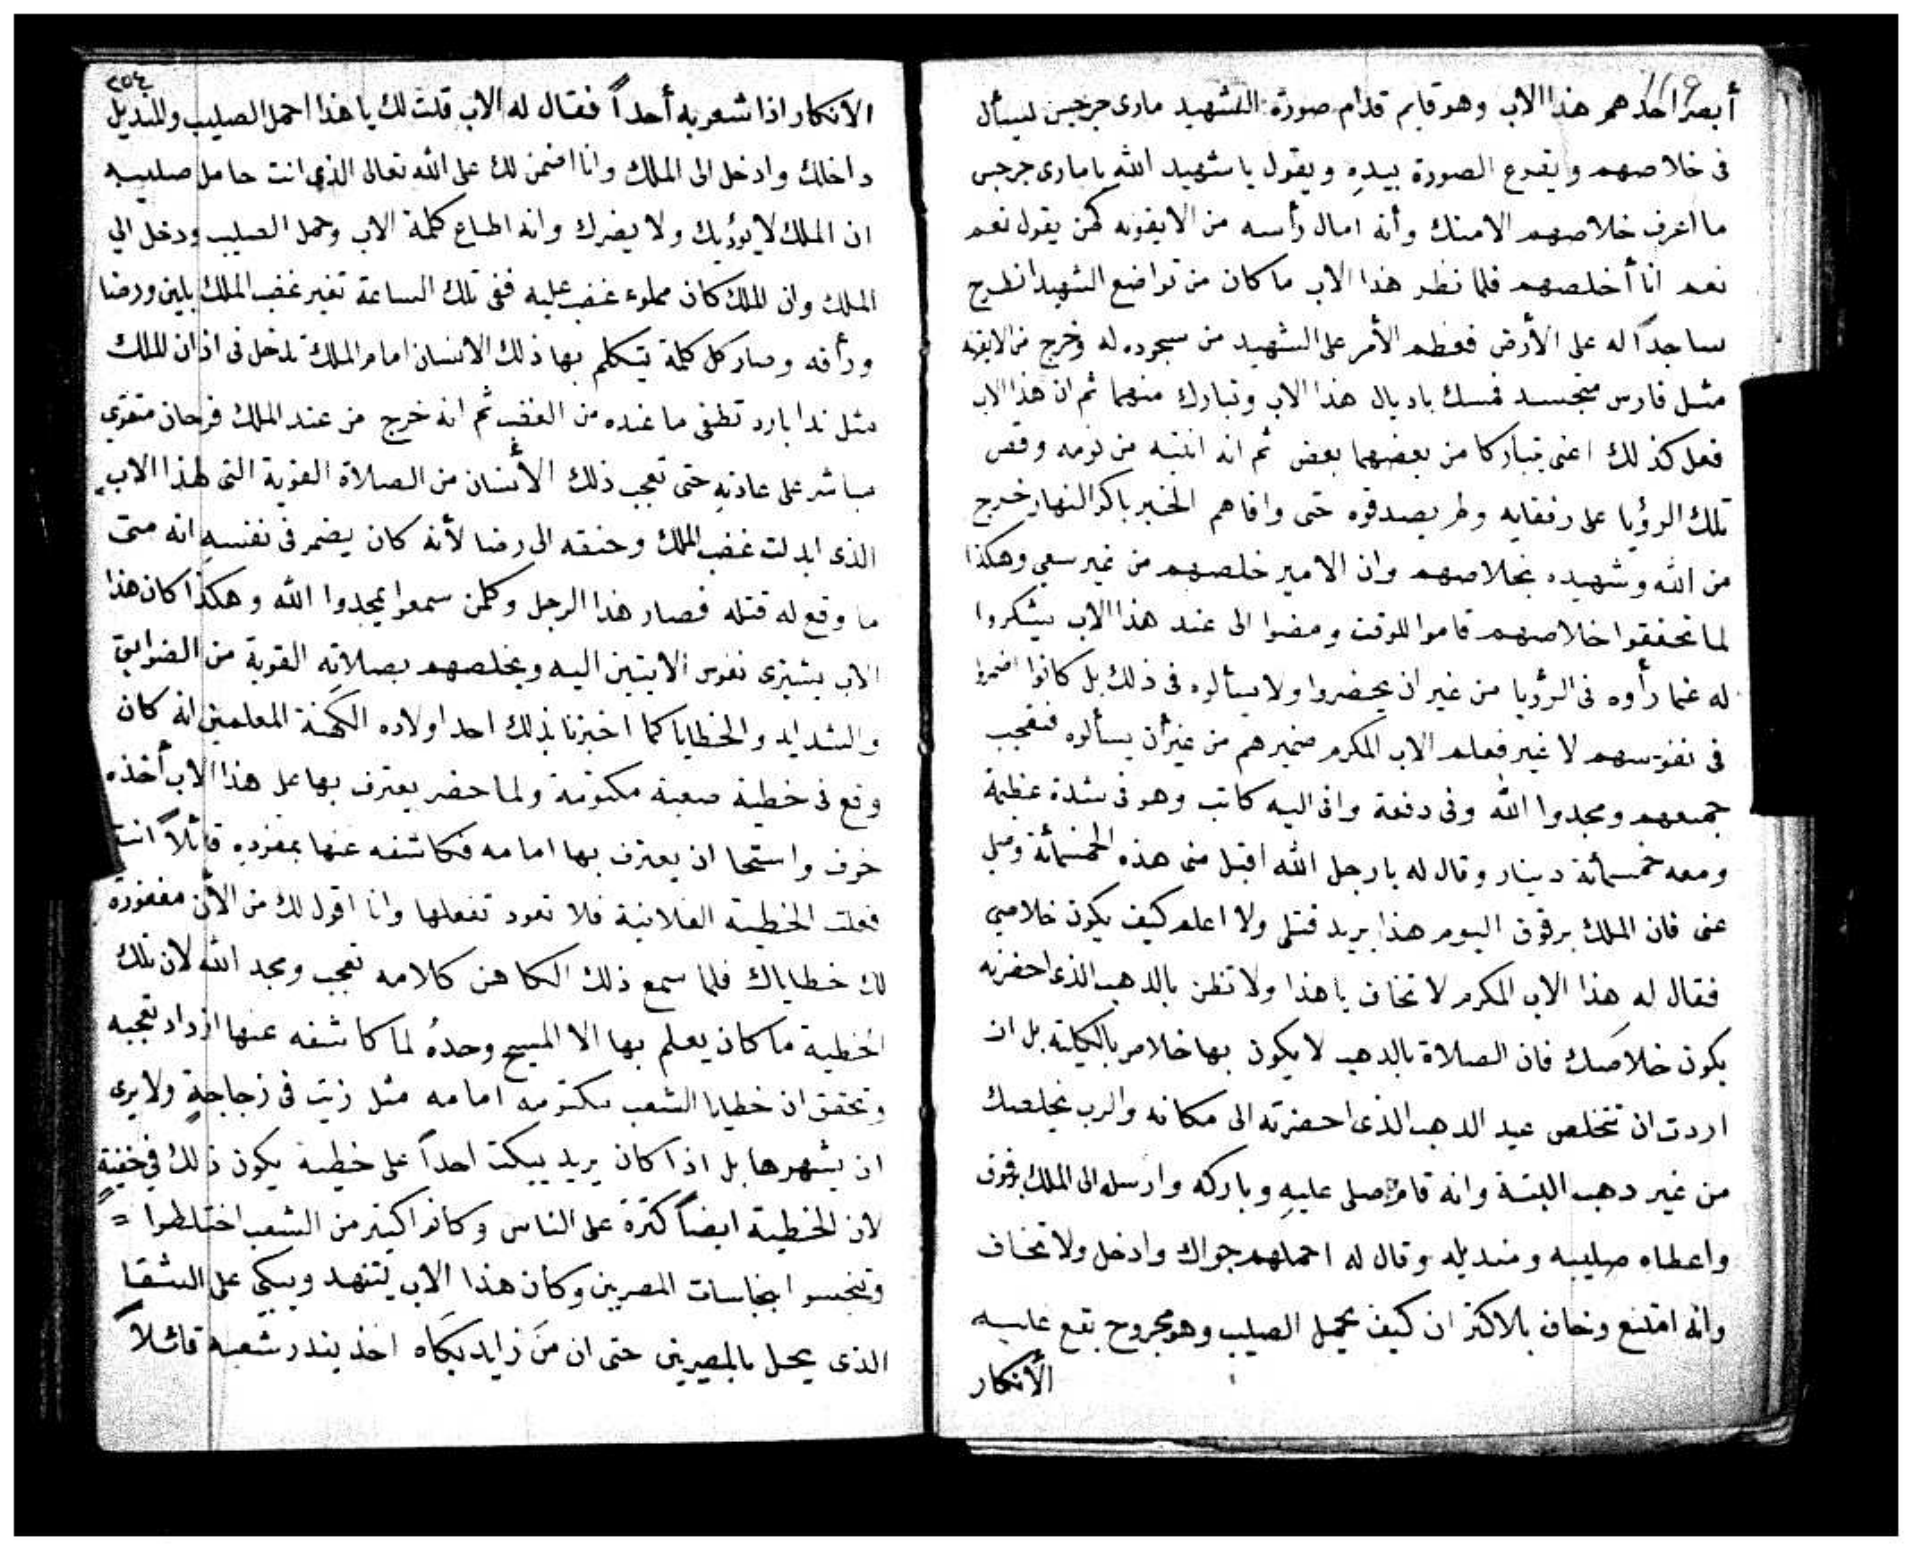 أبصر احدهم هذا الاب وهو قايم قدام صورة الشهيد مارى جرجس ليسأل
فى خلاصهم ويقرع الصورة بيده ويقول يا شهيد الله يا مارى جرجس
ما اعرف خلاصهم الا منك وأنه امال رأسه من الايقونه كمن يقول نعم
نعم انا أخلصهم فلما نظر هذا الاب ما كان من تواضع الشهيد انطرح
ساجداً له على الأرض فعظم الأمر على الشهيد من سجوده له وخرج من الايقونه
مثل فارس متجسد فمسك باديال هذا الاب وتبارك منهما ثم ان هذا الاب
فعل كذلك اعنى تباركا من بعضهما بعض ثم انه انتبه من نومه وقص
تلك الرؤيا على رفقايه ولم يصدقوه حتى وافاهم الخبر باكر النهار خرج
من الله وشهيده بخلاصهم وان الامير خلصهم من غير سعى وهكذا
لما تحققوا خلاصهم قاموا للوقت ومضوا الى عند هذا الاب يشكروا
له عما رأوه فى الرؤيا من غير ان يحضروا ولا يسألوه فى ذلك بل كانوا اضمروا
فى نفوسهم لا غير فعلم الاب المكرم ضميرهم من غير أن يسألوه فتعجب
جميعهم ومجدوا الله وفى دفعة وافى اليه كاتب وهو فى شدة عظيمة
ومعه خمسمائة دينار وقال له يا رجل الله اقبل منى هذه الخمسمائة وصلى
عنى فان الملك برقوق اليوم هذا يريد قتلى ولا اعلم كيف يكون خلاصى
فقال له هذا الاب المكرم لا تخاف يا هذا ولا تظن بالدهب الذى احضرته
يكون خلاصك فان الصلاة بالدهب لا يكون بها خلاص بالكلية بل ان
اردت ان تتخلص عيد الدهب الذى احضرته الى مكانه والرب يخلصك
من غير دهب البتة وانه قام صلى عليه وباركه وارسله الى الملك برقوق
واعطاه صليبه ومنديله وقال له احملهم جواك وادخل ولا تخاف
وانه امتنع وخاف بالاكثر ان كيف يحمل الصليب وهو مجروح يقع عليه
الأنكار
٢٥٤
الانكار اذا شعر به أحداً فقال له الاب قلت لك يا هذا احمل الصليب والمنديل
داخلك وادخل الى الملك وانا اضمن لك على الله تعالى الذى انت حامل صليبه
ان الملك لا يؤذيك ولا يضرك وانه اطاع كلمة الاب وحمل الصليب ودخل الى
الملك وان الملك كان مملوء غضب عليه ففى تلك الساعة تغير غضب الملك بلين ورضا
ورأفه وصار كل كلمة يتكلم بها ذلك الانسان امام الملك تدخل فى اذان الملك
مثل ندا بارد تطفى ما عنده من الغضب ثم انه خرج من عند الملك فرحان متقوى
مباشر على عادته حتى تعجب ذلك الأنسان من الصلاة القوية التى لهذا الاب
الذى ابدلت غضب الملك وحنقه الى رضا لأنه كان يضمر فى نفسه انه متى
ما وقع له قتله فصار هذا الرجل وكلمن سمعوا يمجدوا الله وهكذا كان هذا
الاب يشترى نفوس الاتيين اليه ويخلصهم بصلاته القوية من الضوايق
والشدايد والخطايا كما اخبرنا بذلك احد اولاده الكهنة المعلمين انه كان
وقع فى خطية صعبة مكتومة ولما حضر يعترف بها على هذا الاب أخذه
خوف واستحا ان يعترف بها امامه فكاشفه عنها بمفرده قائلاً انت
فعلت الخطية الفلانية فلا تعود تفعلها وانا اقول لك من الآن مغفورة
لك خطاياك فلما سمع ذلك الكاهن كلامه تعجب ومجد الله لان تلك
الخطية ما كان يعلم بها الا المسيح وحده لما كاشفه عنها ازداد تعجبه
وتحقق ان خطايا الشعب مكتومه امامه مثل زيت فى زجاجة ولا يرى
ان يشهرها بل اذا كان يريد يبكت احداً على خطية يكون ذلك فى خفية
لان الخطية ايضاً كترة على الناس وكانوا كتير من الشعب اختلطوا =
وتنجسوا بنجاسات المصريين وكان هذا الاب يتنهد ويبكى على الشقا
الذى يحل بالمصريين حتى ان من زايد بكاه اخذ ينذر شعبه قائلاً